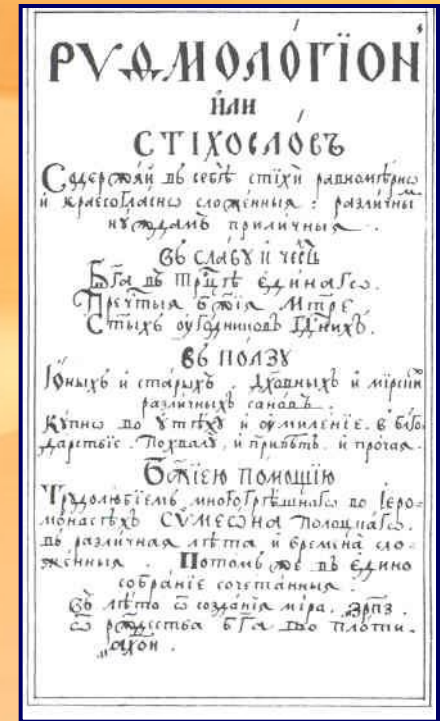 РѴѲМОЛО́ГЇОН
и҆лѝ
СТІХОСЛО́ВЪ
Содержѧй въ себѣ стїхѝ равномѣрнѡ
и҆ краесогласнѡ сложенныѧ: различны̑м
нꙋждамъ приличныѧ.
Въ славꙋ и҆ честь
Бг҃а въ Трⷪ҇цѣ є҆динагѡ.
Пречⷭ҇тыѧ Бж҃їѧ Мт҃ре
Ст҃ыхъ оу҆годниковъ Гдⷭ҇нихъ.
Въ ползꙋ
Юныхъ и҆ старыхъ. Дх҃овныхъ и҆ мїрскиⷯ
различныхъ сановъ.
Кꙋпнѡ во оу҆тѣхꙋ и҆ оу҆миленїе. в бл҃го
дарствїе. Похвалꙋ, и҆ привѣтъ. и҆ прочаѧ.
Бж҃їею помощїю
Трꙋдолюбїемъ многогрѣшнагѡ во Їеро-
монасѣхъ СѴМЕѠНА Полоцкагѡ.
въ различнаѧ лѣта и҆ времена̀ сло-
женныѧ. Потомъ же въ є҆дино
собранїе сочетанныѧ.
Въ лѣто ѿ созданїѧ мїра. ЗРПЗ.
ѿ ржⷭ҇тва Бг҃а во плоти.
҂АХОИ.